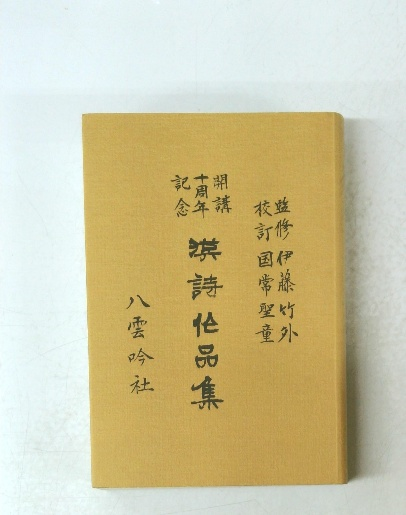 監修 伊藤竹外
校訂 国常聖童
開講
十周年
記念
漢詩作品集
八雲吟社